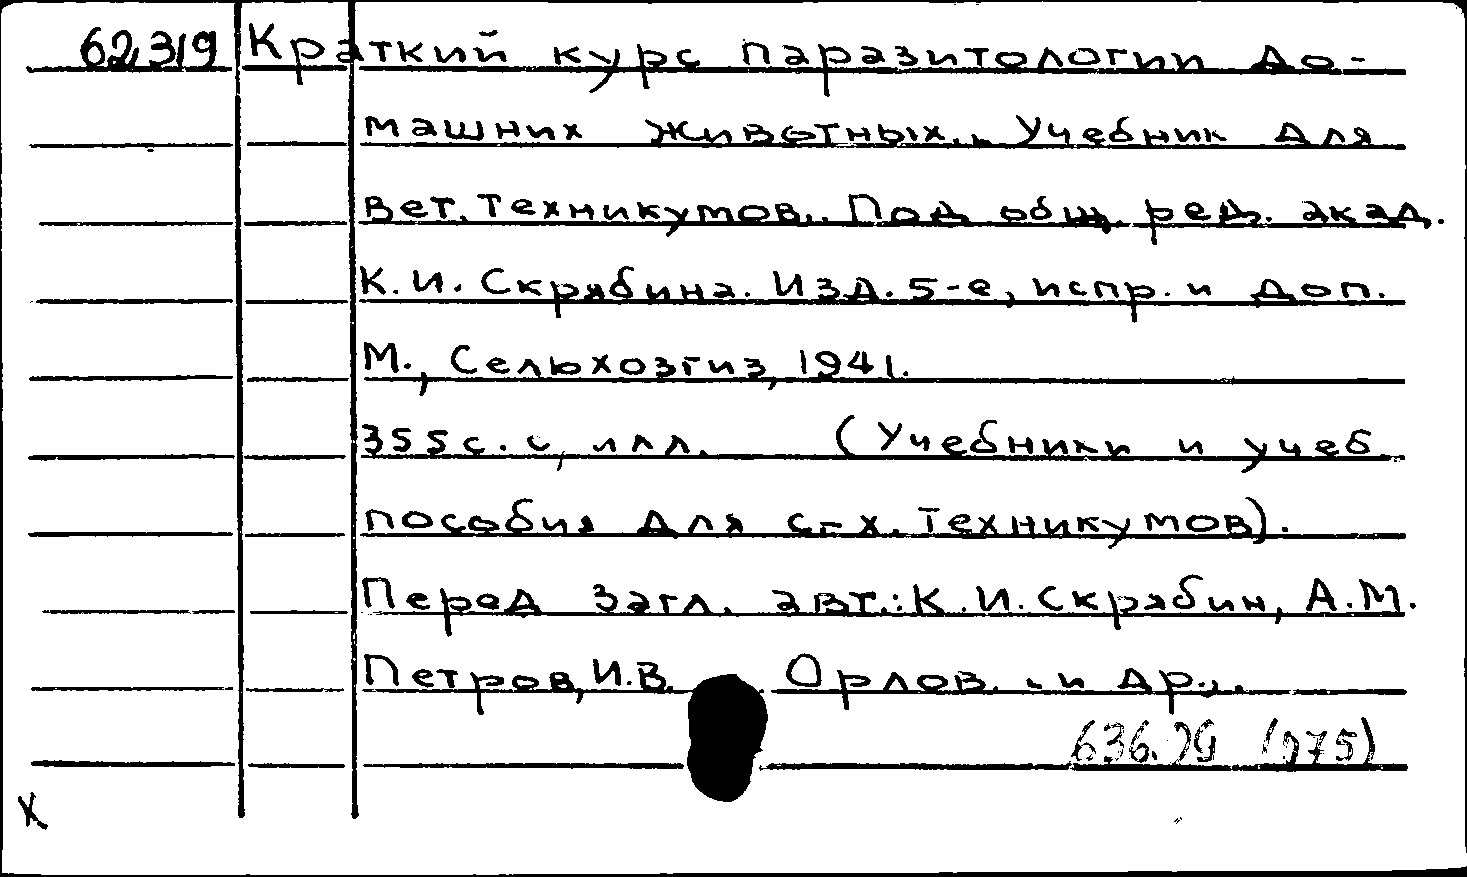 62319 Краткий курс паразитологии до-
машних животных. Учебник для
вет. техникумов. Под общ. ред. акад.
К.И. Скрябина. Изд. 5-е, испр. и доп.
М., Сельхозгиз, 1941.
355 с. с, илл. (Учебники и учеб.
пособия для с.-х. техникумов).
Перед загл. авт.: К.И. Скрябин, А.М.
Петров, И.В. Орлов. и др.,.
(075)
X